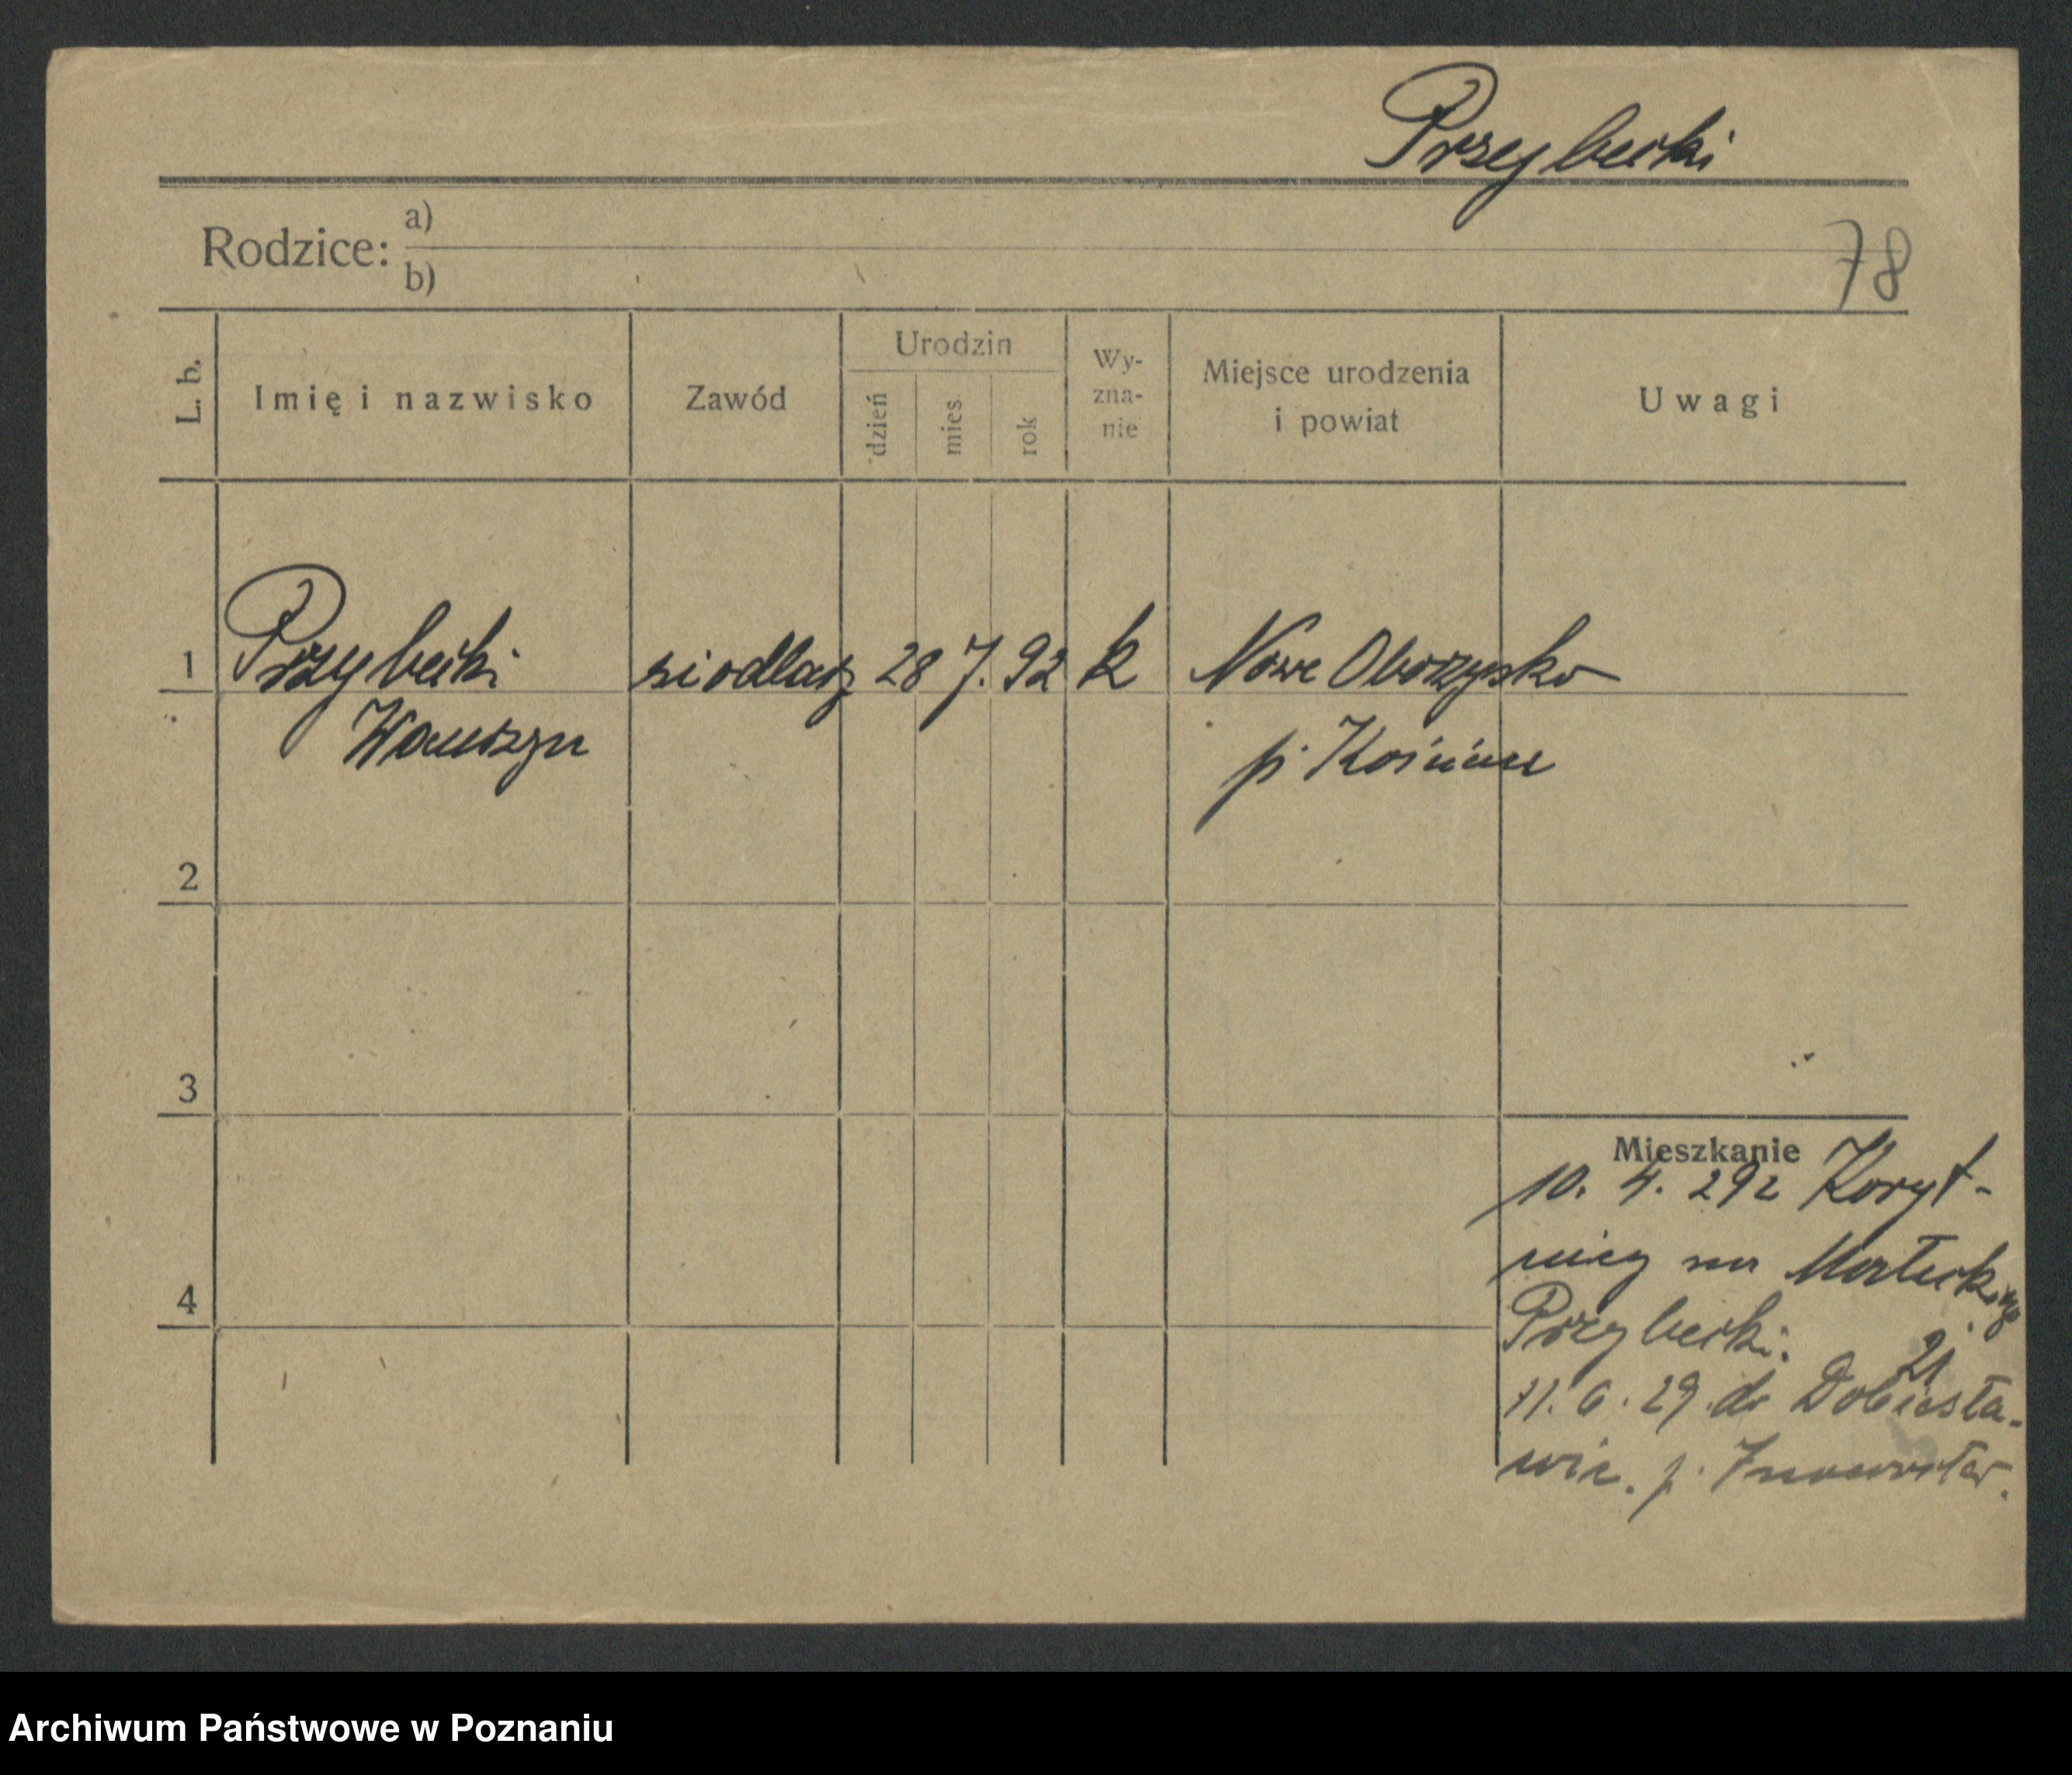 Przybecki
Rodzice: a)
b)
78
L. b.
Imię i nazwisko
Zawód
Urodzin
dzień
mies.
rok
Wy-
zna-
nie
Miejsce urodzenia
i powiat
Uwagi
1 Przybecki siodlarz 28 7. 92 k Nowe Oborzysko
Wawrzyn p.
2
3
4
Mieszkanie
10. 4. 29 z Koryt-
nicy
Przybecki.
21
11. 6. 29. do Dobiesła-
wic. p. Inowrocław.
Archiwum Państwowe w Poznaniu